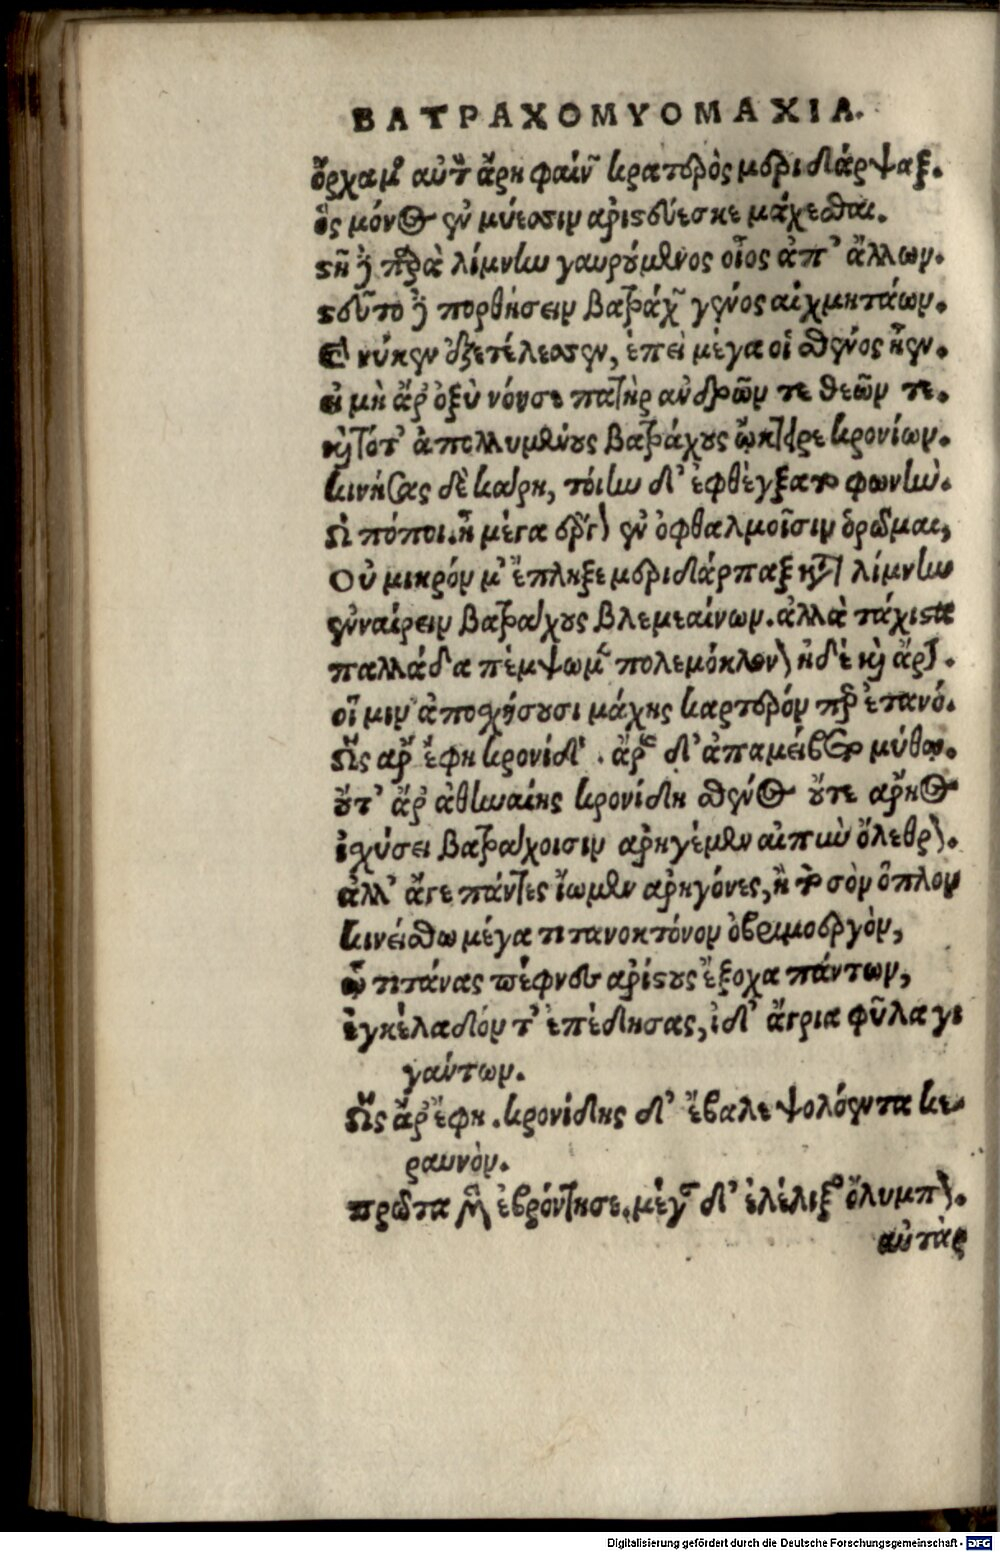 ΒΑΤΡΑΧΟΜΥΟΜΑΧΙΑ.
ὄρχαμος αὐτὸν ἄρη φαίνων κρατερὸς μεριδάρψαξ.
ὃς μόνος ἐν μύεσσιν ἀρίστεύεσκε μάχεσθαι.
στῆ δὲ παρὰ λίμνην γαυρούμενος οἶος ἀπ' ἄλλων.
στεῦτο δὲ πορθήσειν βατράχων γένος αἰχμητάων.
Καί νύ κεν ἐξετέλεσσεν, ἐπεὶ μέγα οἱ σθένος ἦεν.
εἰ μὴ ἄρ' ὀξὺ νόησε πατὴρ ἀνδρῶν τε θεῶν τε.
καὶ τότ' ἀπολλυμένους βατράχους ᾤκτειρε κρονίων.
κινήσας δὲ κάρη, τοίην δ' ἐφθέγξατο φωνήν.
Ὢ πόποι. ἦ μέγα ἔργον ἐν ὀφθαλμοῖσιν ὁρῶμαι,
Οὐ μικρόν μ' ἔπληξε μεριδάρπαξ κατὰ λίμνην
ἐναίρειν βατράχους βλεμεαίνων. ἀλλὰ τάχιστα
παλλάδα πέμψωμεν πολεμόκλονον ἠδὲ καὶ ἄρην.
οἵ μιν ἀποσχήσουσι μάχης καρτερόν περ ἐτανό.
Ὣς ἄρ' ἔφη κρονίδης. ἄρης δ' ἀπαμείβετο μύθον.
οὔτ' ἄρ' ἀθηναίης κρονίδη σθένος οὔτε ἄρηος
ἰχύσει βατράχοισιν ἀρηγέμεν αἰπὺν ὄλεθρον.
ἀλλ' ἄγε πάντες ἴωμεν ἀρηγόνες, ἢ τὸ σὸν ὅπλον
κινείσθω μέγα τιτανοκτόνον ὀβριμοεργὸν,
ᾧ τιτάνας πέφνες ἀρίστους ἔξοχα πάντων,
ἐγκέλαδόν τ' ἐπέδησας, ἰδ' ἄγρια φῦλα γι
γάντων.
Ὣς ἄρ' ἔφη. κρονίδης δ' ἔβαλε ψολόεντα κε-
ραυνὸν.
πρῶτα μὲν ἐβρόντησε. μέγαν δ' ἐλέλιξεν ὄλυμπον.
αὐτὰρ
Digitalisierung gefördert durch die Deutsche Forschungsgemeinschaft - DFG